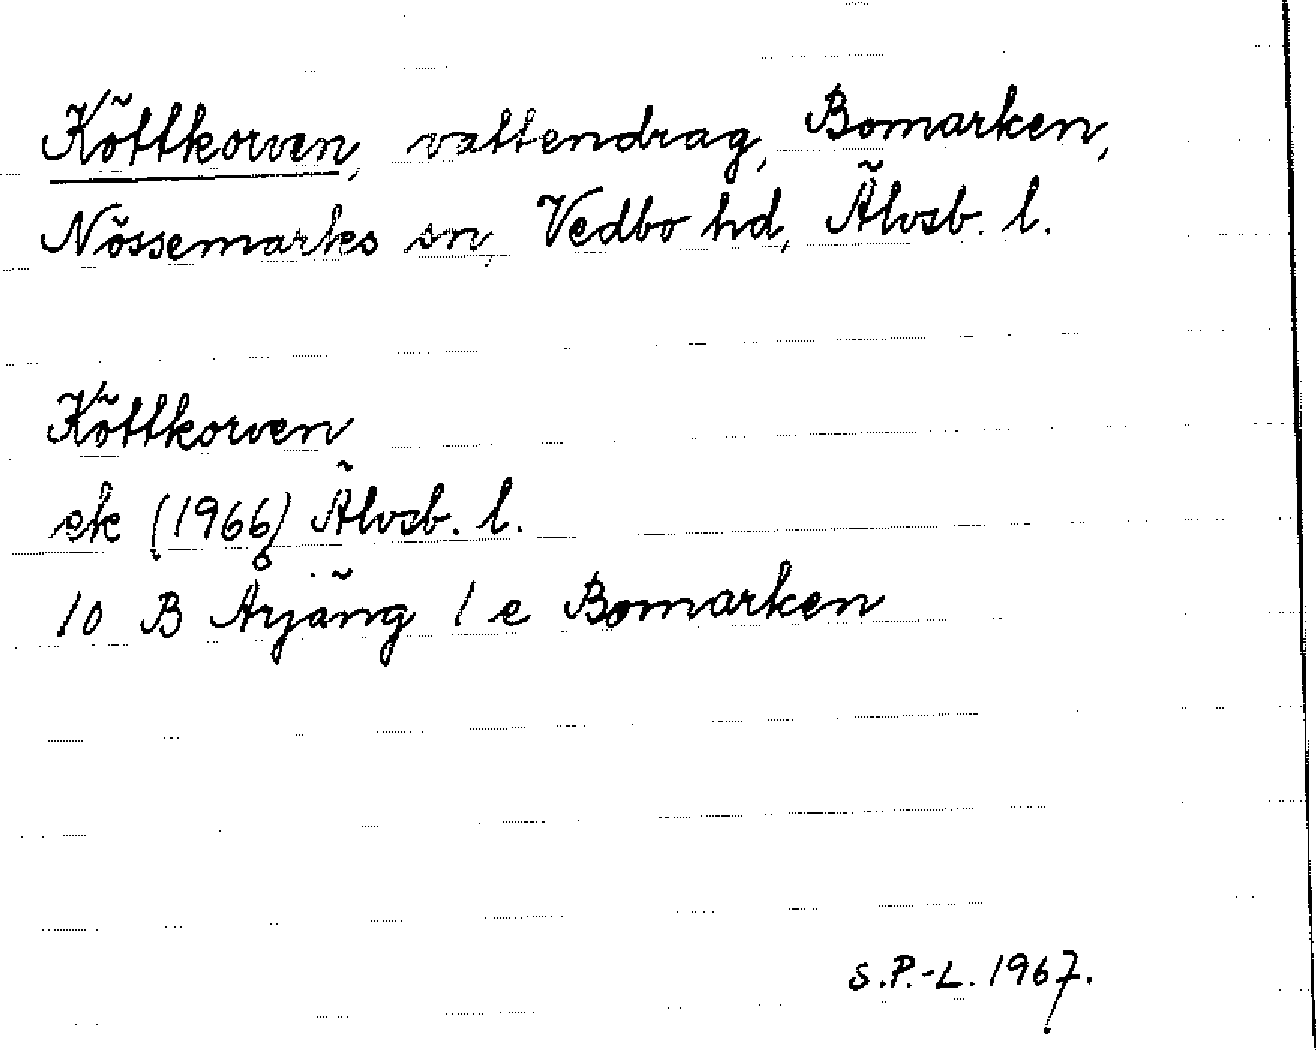 Köttkorven, vattendrag, Bomarken,
Nössemarks sn, Vedbo hd, Älvsb. l.
Köttkorven
ek (1966) Älvsb. l.
10 B Årjäng 1 e Bomarken
S.P.-L. 1967.